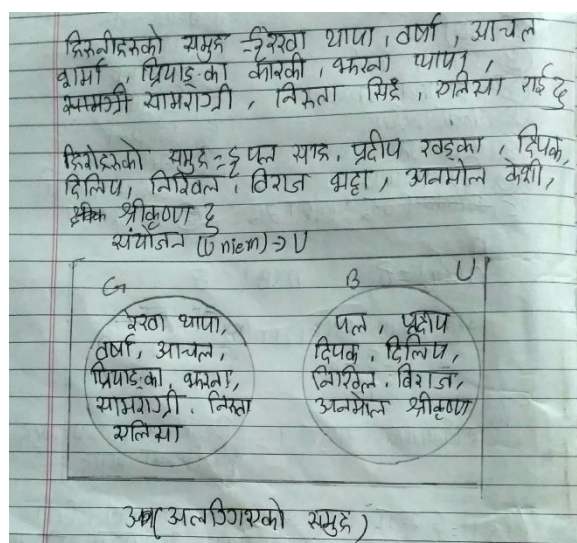 हिरुनीहरुको समुह = { रेखा थापा, वर्षा, आचल
शर्मा, प्रियाङ्का कारकी, झरना थापा,
सामाग्री सामराग्री, निरुता सिहँ, एलिसा राई }
हिरोहरुको समुह = { पल साह, प्रदीप खड्का, दिपक,
दिलिप, निखिल, विराज भट्टा, अनमोल केसी,
श्रीकृष्ण }
संयोजन (Uniem) => U
G B U
रेखा थापा,
वर्षा, आचल,
प्रियाङ्का, झरना,
सामराग्री, निरुता
एलिसा
पल, प्रदीप
दिपक, दिलिप,
निखिल, विराज,
अनमोल श्रीकृष्ण
(अलग्गिएको समुह)